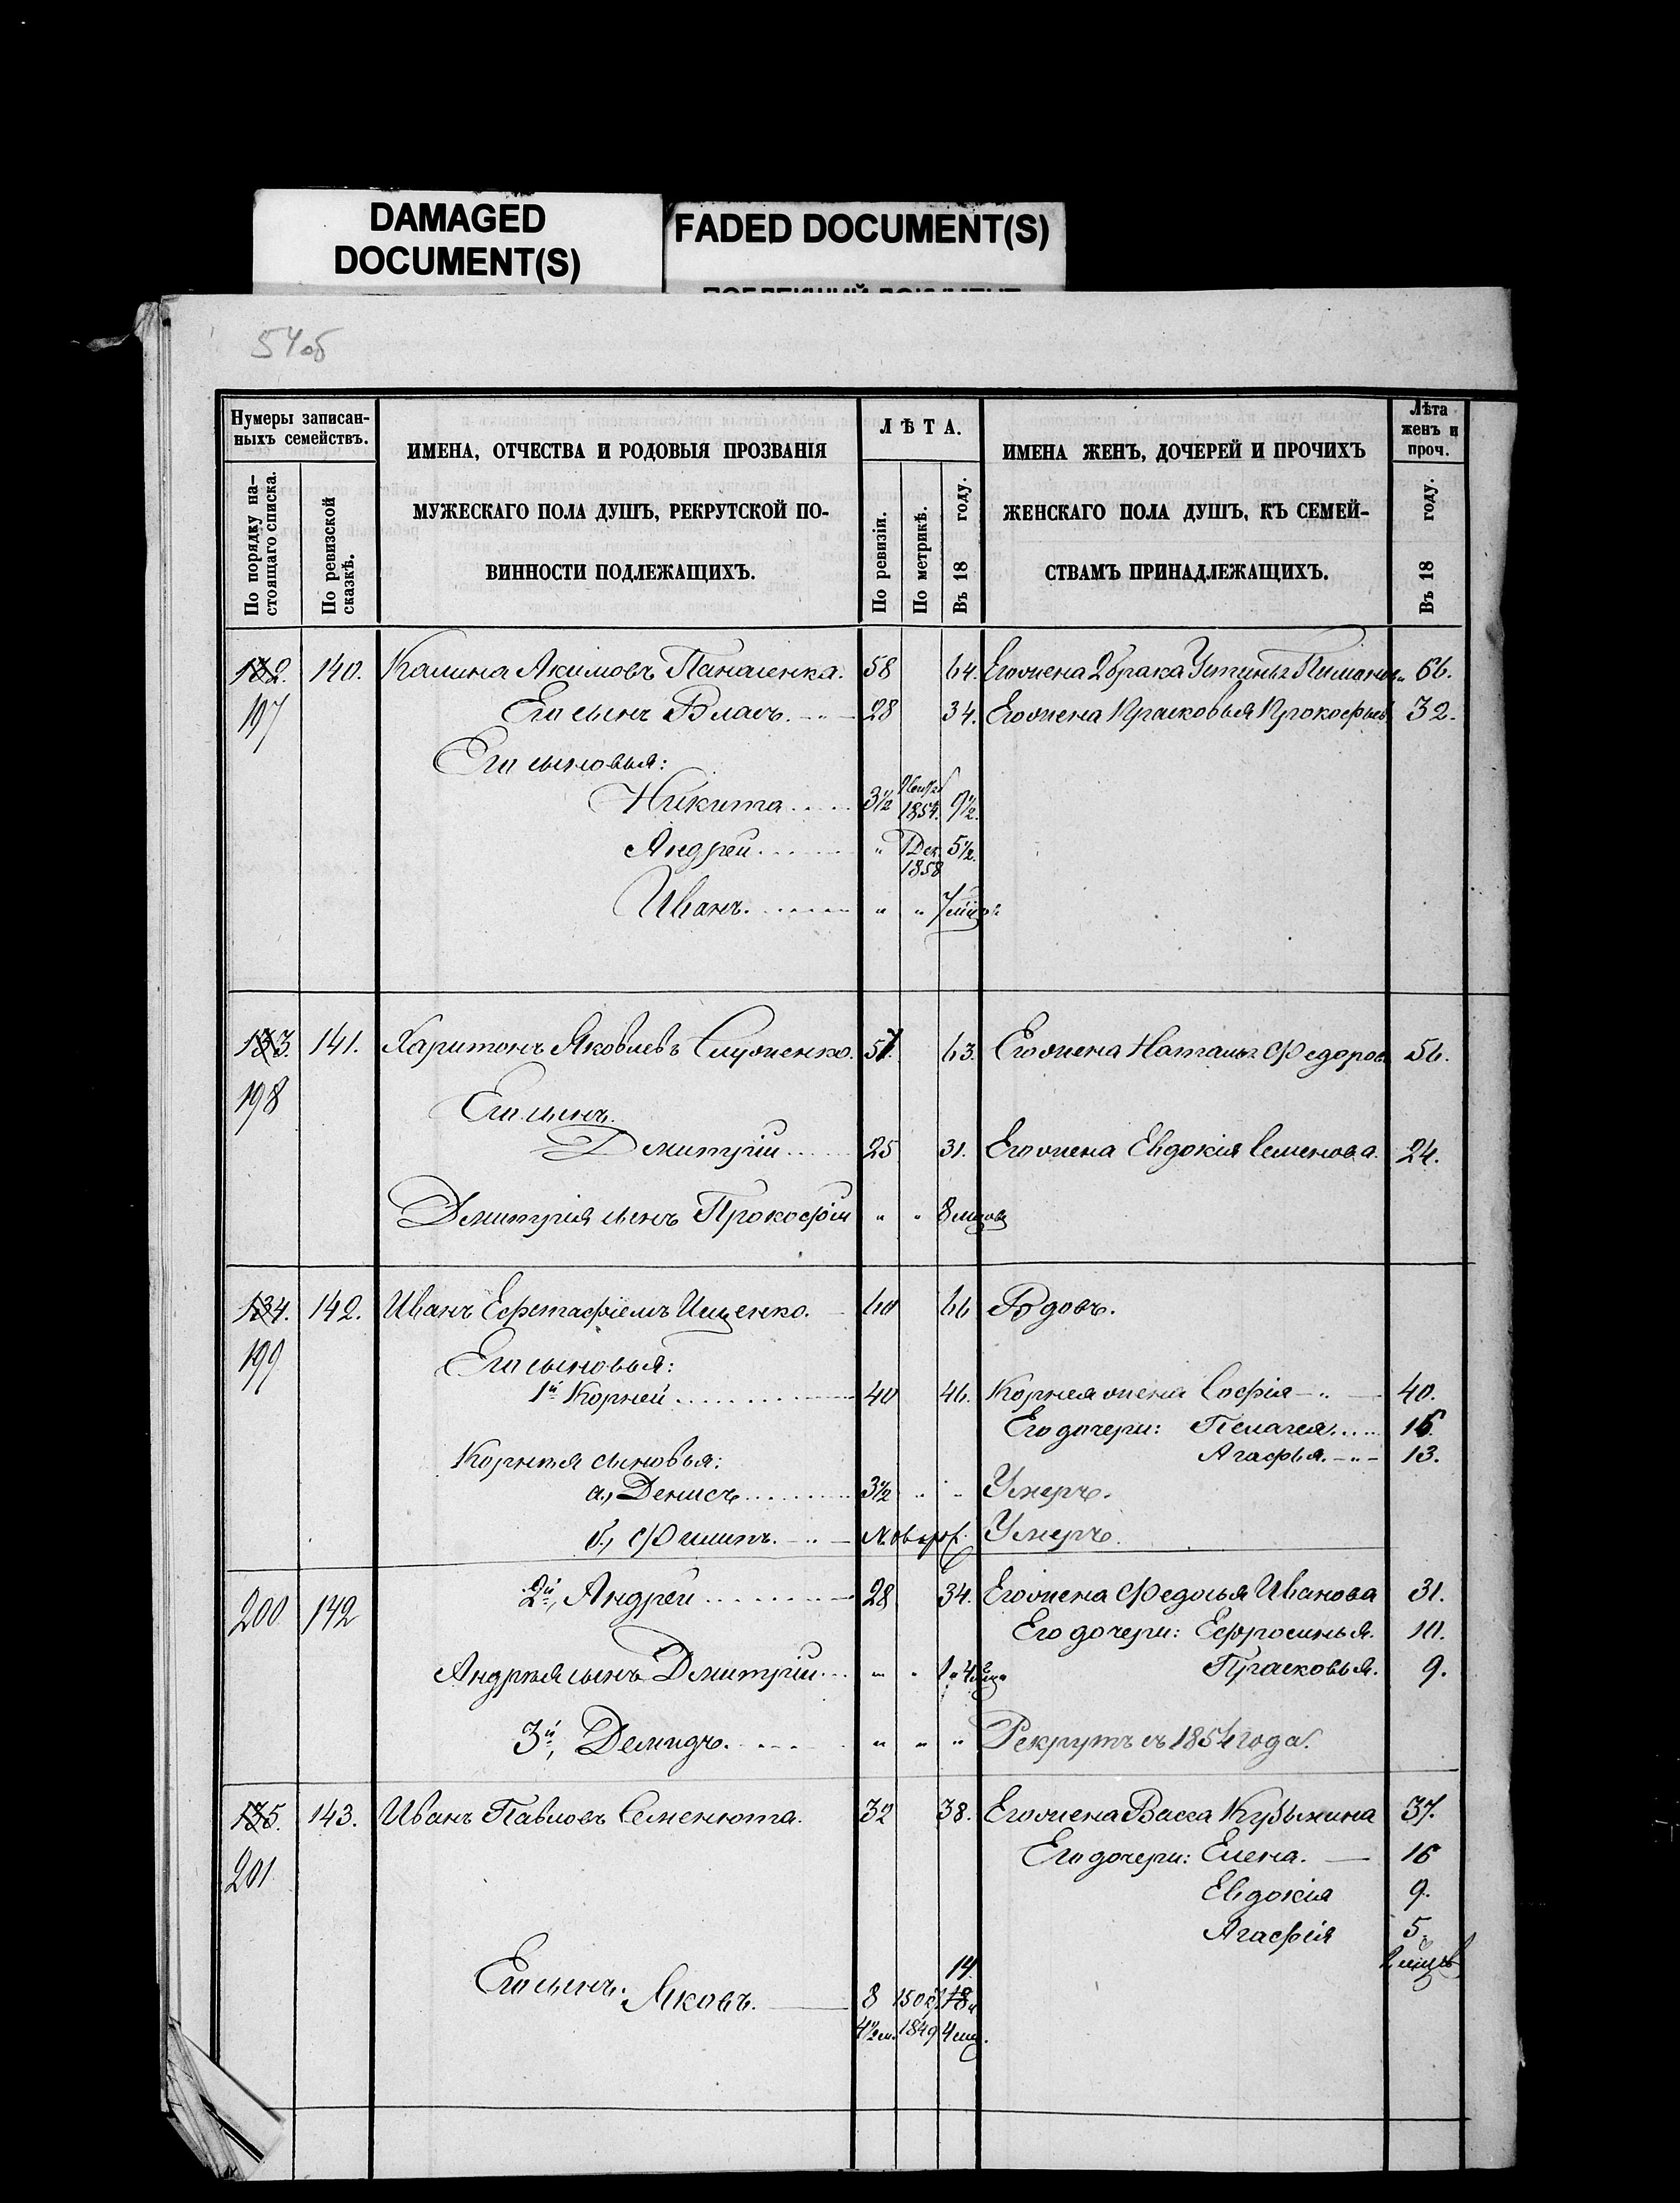 DAMAGED
DOCUMENT(S)
FADED DOCUMENT(S)
54об
Нумеры записан-
ныхъ семействъ.
По порядку на-
стоящаго списка.
По ревизской
сказкѣ.
ИМЕНА, ОТЧЕСТВА И РОДОВЫЯ ПРОЗВАНІЯ
МУЖЕСКАГО ПОЛА ДУШЪ, РЕКРУТСКОЙ ПО-
ВИННОСТИ ПОДЛЕЖАЩИХЪ.
ЛѢТА.
По ревизіи.
По метрикѣ.
Въ 18 году.
ИМЕНА ЖЕНЪ, ДОЧЕРЕЙ И ПРОЧИХЪ
ЖЕНСКАГО ПОЛА ДУШЪ, КЪ СЕМЕЙ-
СТВАМЪ ПРИНАДЛЕЖАЩИХЪ.
Лѣта
женъ и
проч.
Въ 18 году.
132. 140. Калина Акимовъ 58 64. Его жена 2 брака Устинья 66.
197 Его сынъ Власъ. 28 34. Его жена Прасковья Прокофьев 32.
Его сыновья:
Никита 3½ 1854. 9½.
Андрей " Дек 1858 5½.
Иванъ " " 7 мѣц
133. 141. Харитонъ Яковлевъ 57. 63. Его жена Наталья Федоров 56.
198
Его сынъ.
Дмитрій 25 31. Его жена Евдокія Семенова. 24.
Дмитрія сынъ Прокофій " " 8 мцовъ
134. 142. Иванъ Ищенко. 60 66 Вдовъ.
199
Его сыновья:
1й Корней 40 46. Корнея жена Софія 40.
Его дочери: Пелагея. 16.
Агафья. 13.
Корнѣя сыновья:
а., Денисъ 3½ " " Умеръ.
б., Филипъ. новорож. Умеръ.
200 142 2й, Андрей 28 34. Его жена Федосья Иванова 31.
Его дочери: Ефросинья. 10.
Андрѣя сынъ Дмитрій " " Прасковья. 9.
3й, Демидъ. " " " Рекрутъ съ 1854 года.
135. 143. Иванъ Павловъ Семенюта. 32 38. Его жена Васса Кузьмина 37.
201 Его дочери: Елена. 16
Евдокія 9.
Агафія 5.
2 мѣцвъ
14.
Его сынъ: Яковъ. 8 18
4½ м. 1849 4 мц.